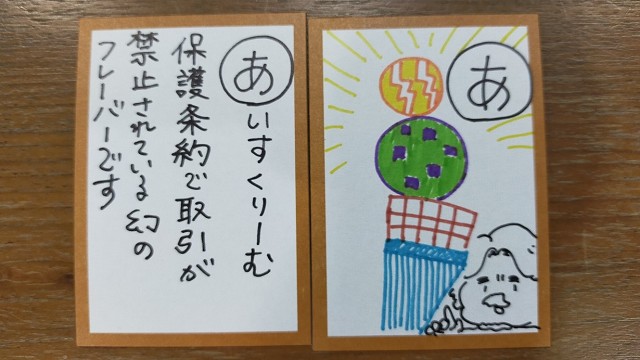 あいすくりーむ
保護条約で取引が
禁止されている幻の
フレーバーです
あ